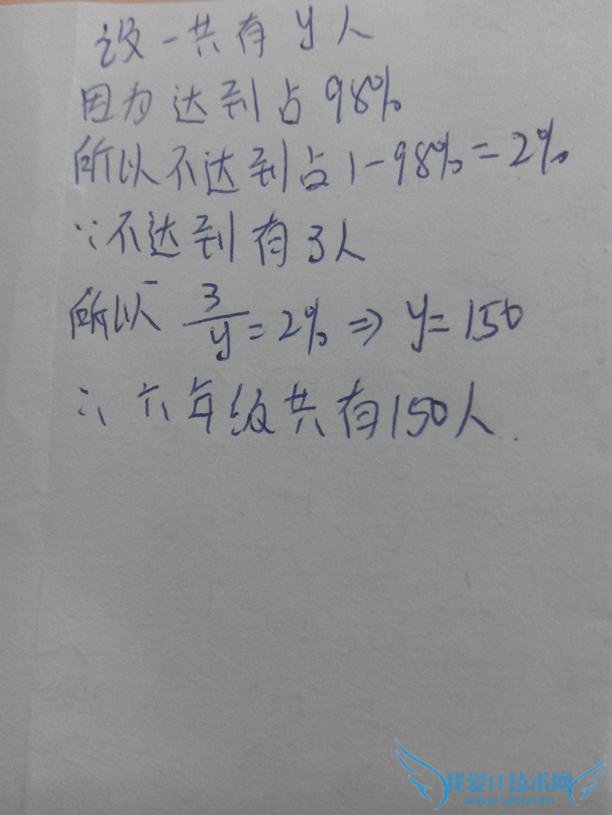 设一共有y人
因为达到占98%
所以不达到占1-98%=2%
∵不达到有3人
所以 3/y=2% ⇒ y=150
∴六年级共有150人.
我爱IT技术网